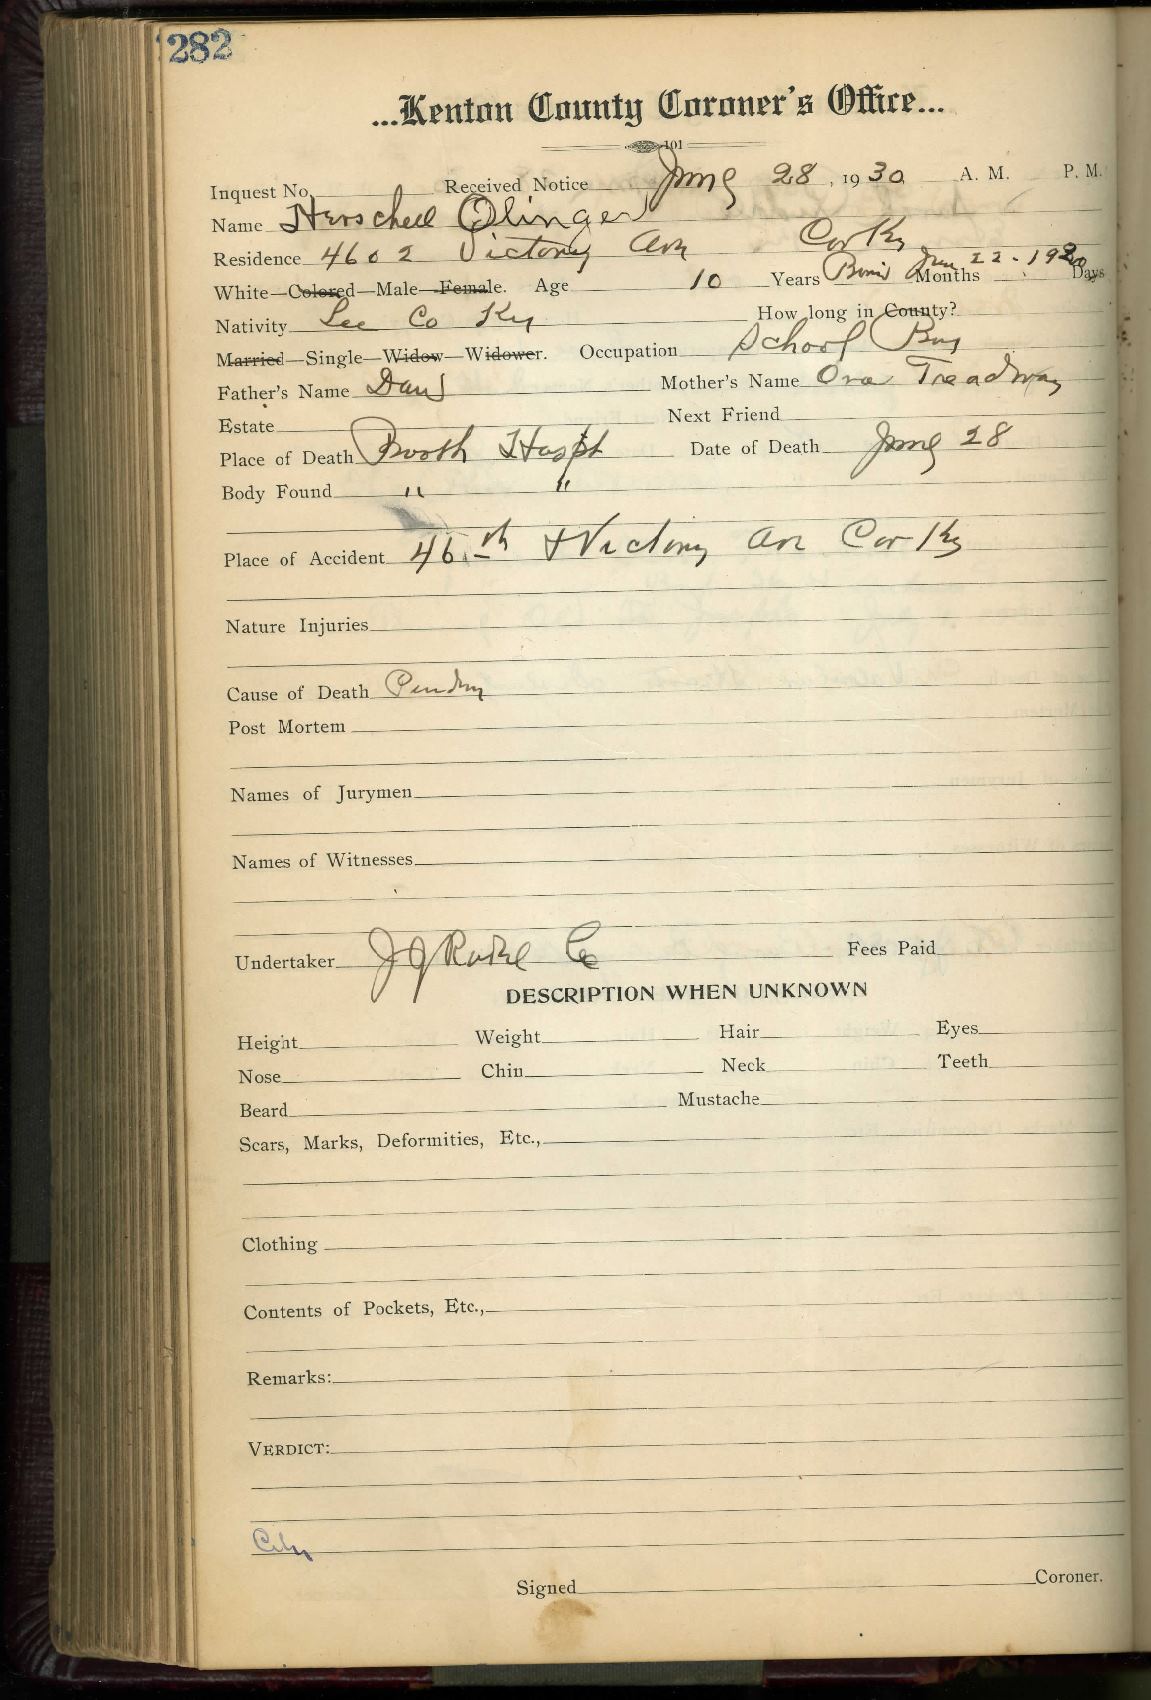 282
...Kenton County Coroner's Office...
101
Inquest No. Received Notice June 28, 1930 A. M. P. M.
Name Herschell Olinger
Residence 4602 Victory Ave Cov Ky
White—Colored—Male—Female. Age 10 Years Born Months Jun 22-1920 Days
Nativity Lee Co Ky How long in County?
Married—Single—Widow—Widower. Occupation School Boy
Father's Name Mother's Name Ora Treadway
Estate Next Friend
Place of Death Booth Hospt Date of Death June 28
Body Found " "
Place of Accident 46th + Victory Ave Cov Ky
Nature Injuries
Cause of Death Pending
Post Mortem
Names of Jurymen
Names of Witnesses
Undertaker J J Co Fees Paid
DESCRIPTION WHEN UNKNOWN
Height Weight Hair Eyes
Nose Chin Neck Teeth
Beard Mustache
Scars, Marks, Deformities, Etc.,
Clothing
Contents of Pockets, Etc.,
Remarks:
VERDICT:
City
Signed Coroner.